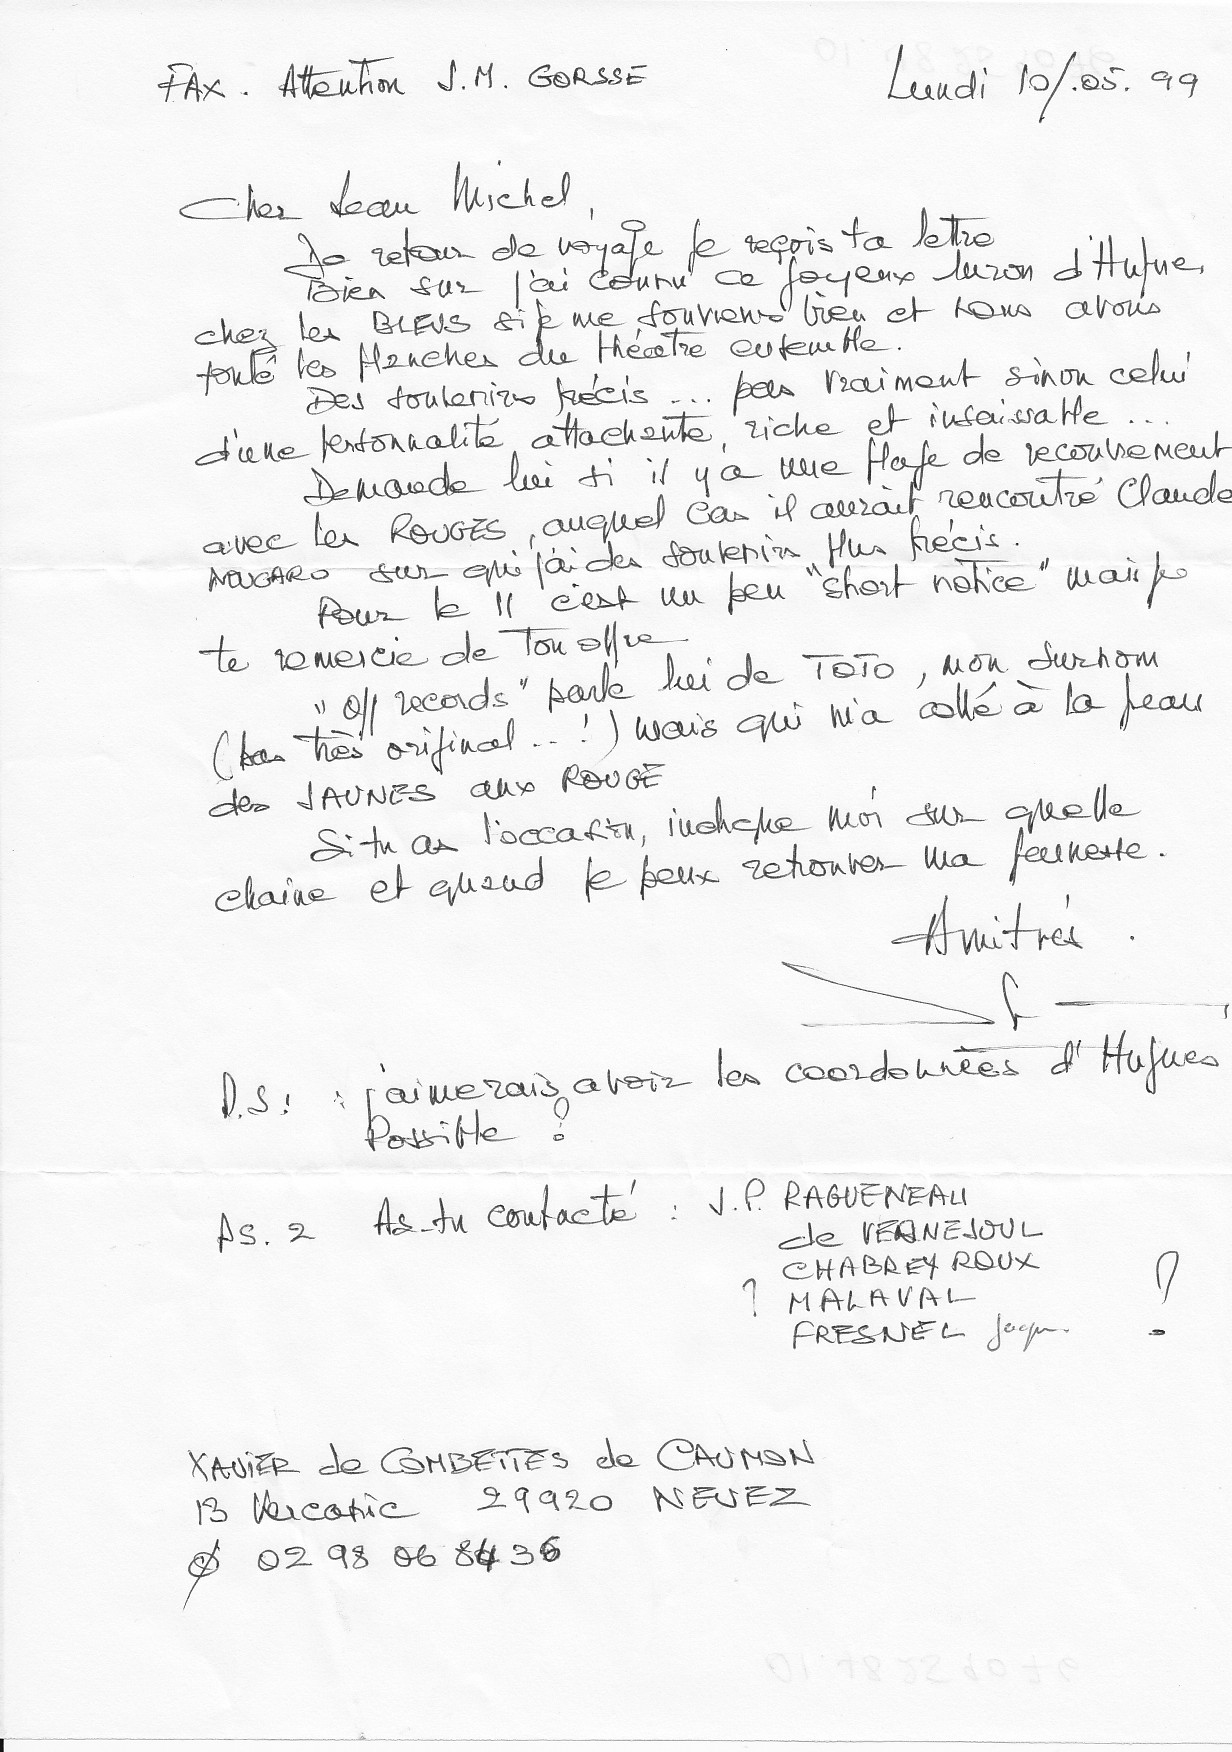 FAX. Attention J.M. GORSSE
Lundi 10/.05.99
Cher Jean Michel,
De retour de voyage je reçois ta lettre
Bien sur j'ai connu ce joyeux luron d'Hugues
chez les BLEUS si je me souviens bien et nous avons
foulé les planches du théatre ensemble.
Des souvenirs précis ... pas vraiment sinon celui
d'une personnalité attachante, riche et insaissable ...
Demande lui si il y'a une plage de recouvrement
avec les ROUGES, auquel cas il aurait rencontré Claude
NOUGARO sur qui j'ai des souvenirs plus précis.
Pour le 11 c'est un peu "short notice" mais je
te remercie de Ton offre
"Off records" parle lui de TOTO, mon surnom
(pas très original...!) mais qui m'a collé à la peau
des JAUNES aux ROUGE
Si tu as l'occasion, indique moi sur quelle
chaine et quand je peux retrouver ma jeunesse.
Amitiés.
P.S. : j'aimerais avoir les coordonnées d'Hugues
Possible ?
PS. 2 As-tu contacté : J.P. RAGUENEAU
de VERNEJOUL
CHABREYROUX
? MALAVAL ?
FRESNEL Jacques
XAVIER de COMBETTES de CAUMON
13 Kercanic 29920 NEVEZ
02 98 06 84 36